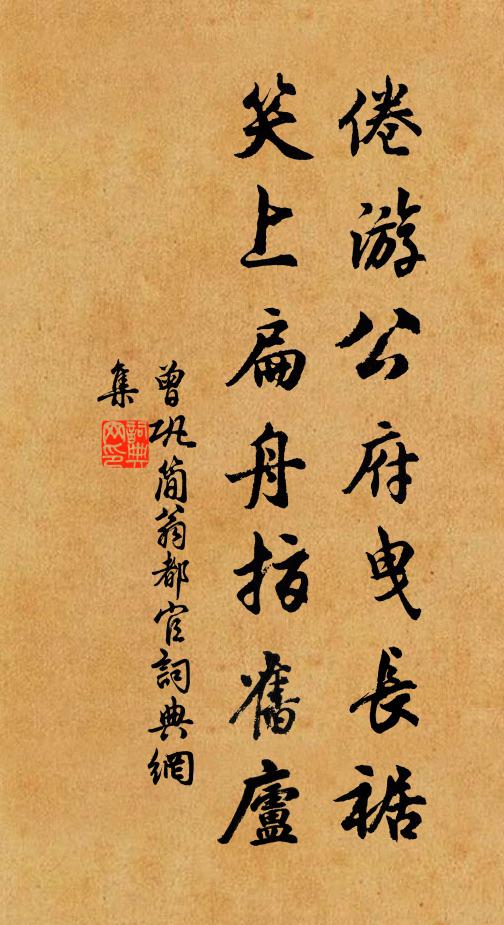 倦游公府曳長裾
笑上扁舟指舊廬
曾巩簡翁都官詞典網
集
詞典网印